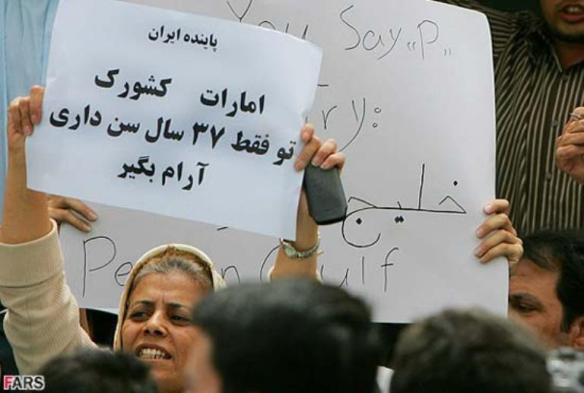 پاینده ایران
امارات کشورک
تو فقط ۳۷ سال سن داری
آرام بگیر
You Say «P»
ry:
خلیج
Pe n Gulf
FARS